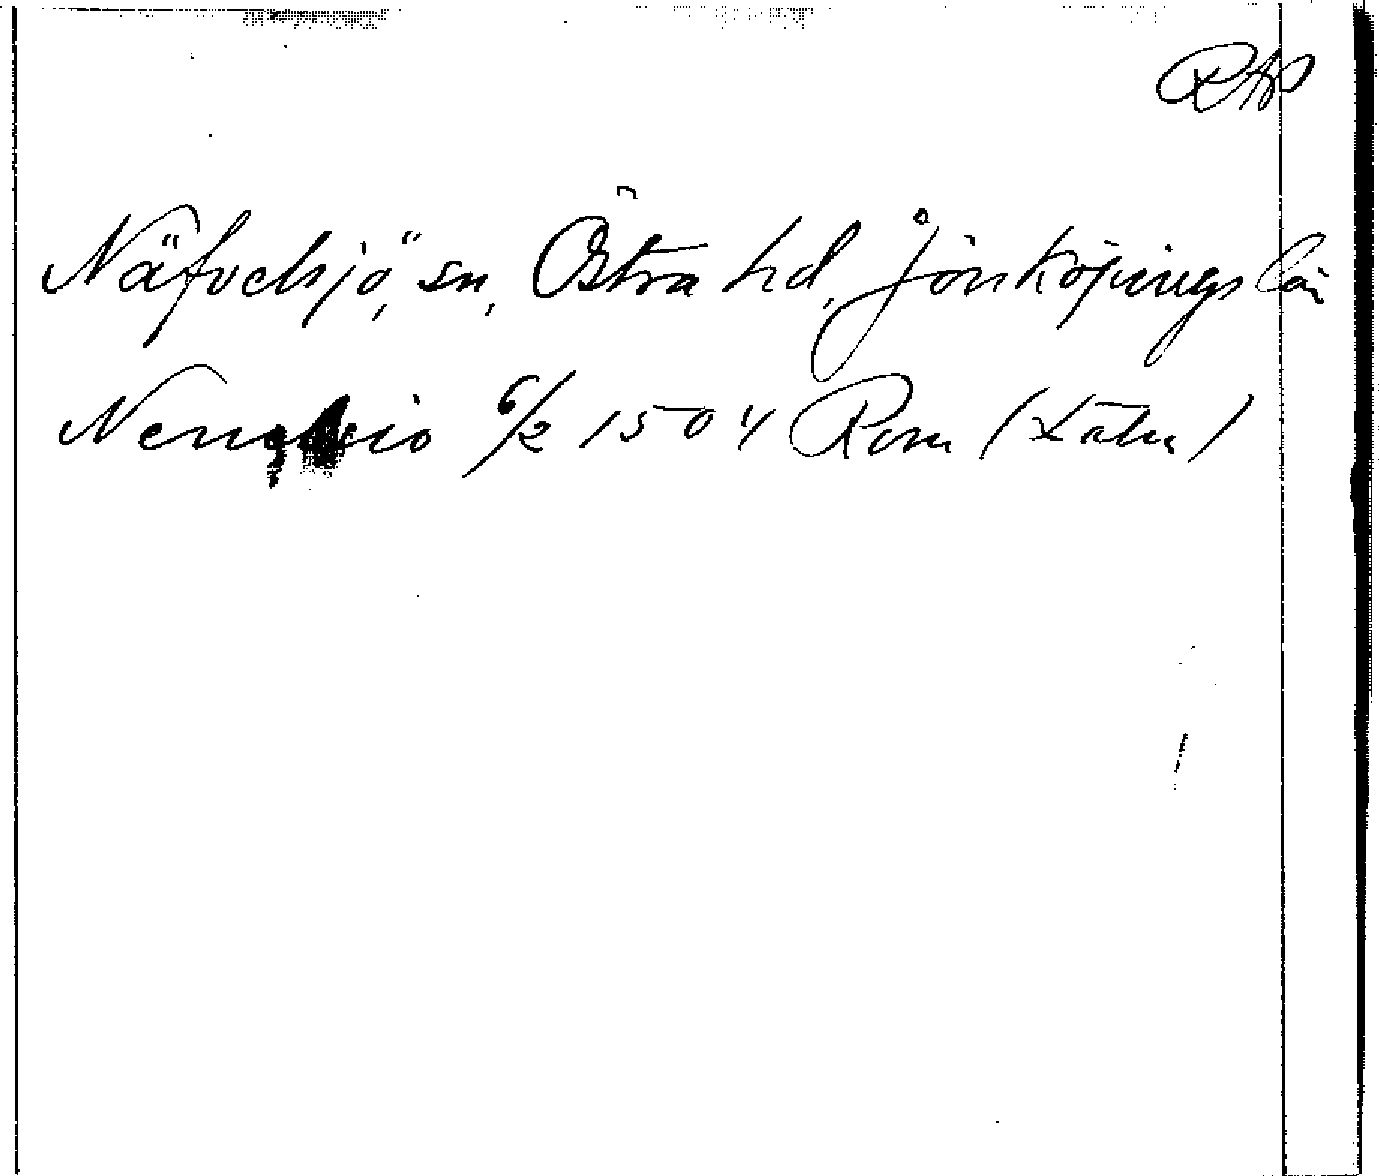 RAP
Näfvelsjö, sn, Östra hd, Jönköpings län
6/2 1504 Rom (Latin)